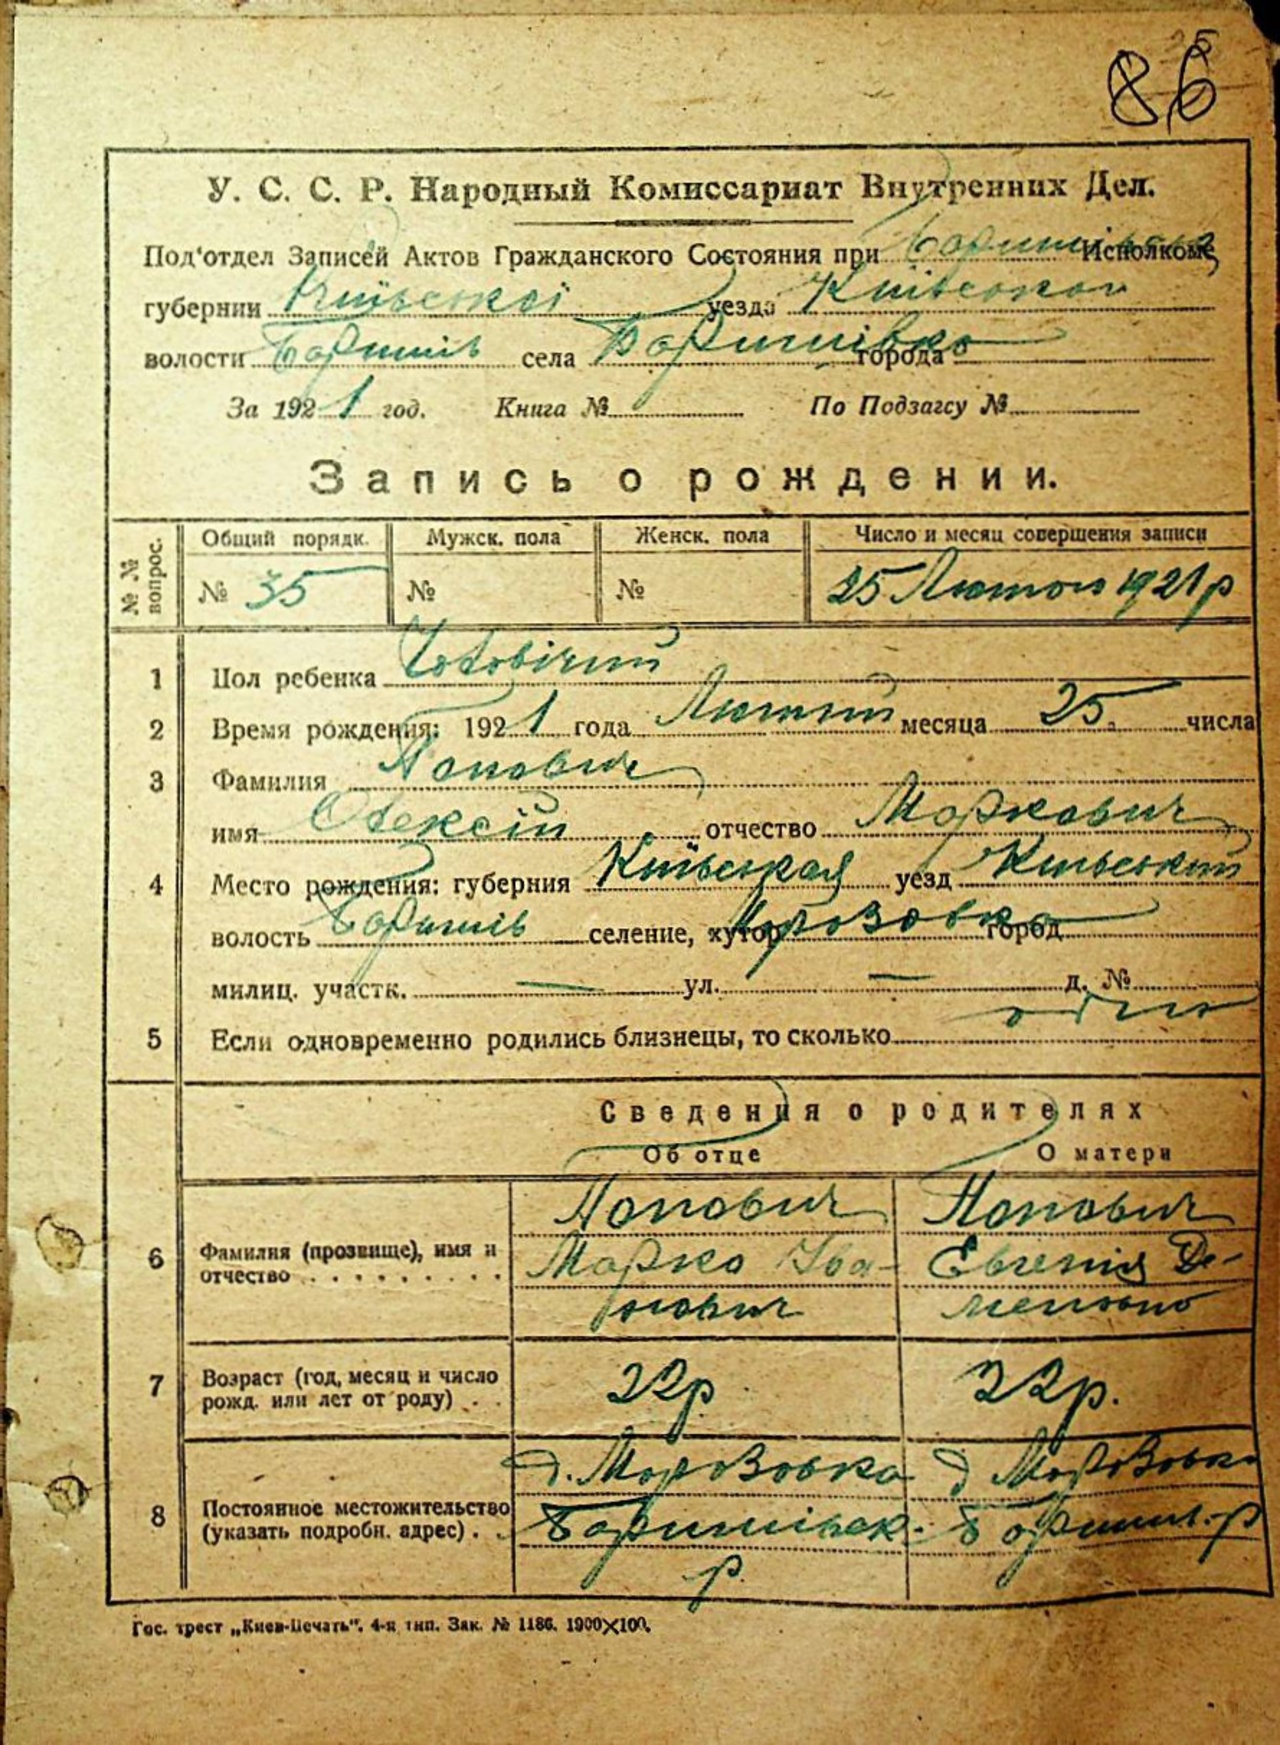 86
У. С. С. Р. Народный Комиссариат Внутренних Дел.
Под'отдел Записей Актов Гражданского Состояния при Исполкоме
губернии Київської уезда Київського
волости Баришів села Баришівка города
За 1921 год. Книга № По Подзагсу №
Запись о рождении.
№ № вопрос. Общий порядк. Мужск. пола Женск. пола Число и месяц совершения записи
№ 35 № № 25 Лютого 1921 р
1 Пол ребенка Чоловічий
2 Время рождения: 1921 года Лютий месяца 25 числа
3 Фамилия Попович
имя Олексій отчество Маркович
4 Место рождения: губерния Київская уезд Київський
волость Баришів селение, хутор Морозовка город
милиц. участк. — ул. — д. №
5 Если одновременно родились близнецы, то сколько одно
Сведения о родителях
Об отце О матери
6 Фамилия (прозвище), имя и отчество Попович Попович
Марко Іва- Евгенія Де-
нович
7 Возраст (год, месяц и число рожд. или лет от роду) 22р 22р.
8 Постоянное местожительство (указать подробн. адрес) д. Морозовка д Морозовка
Баришівськ. Баришів. р
р.
Гос. трест „Киев-Печать". 4-я тип. Зак. № 1186. 1900×100.